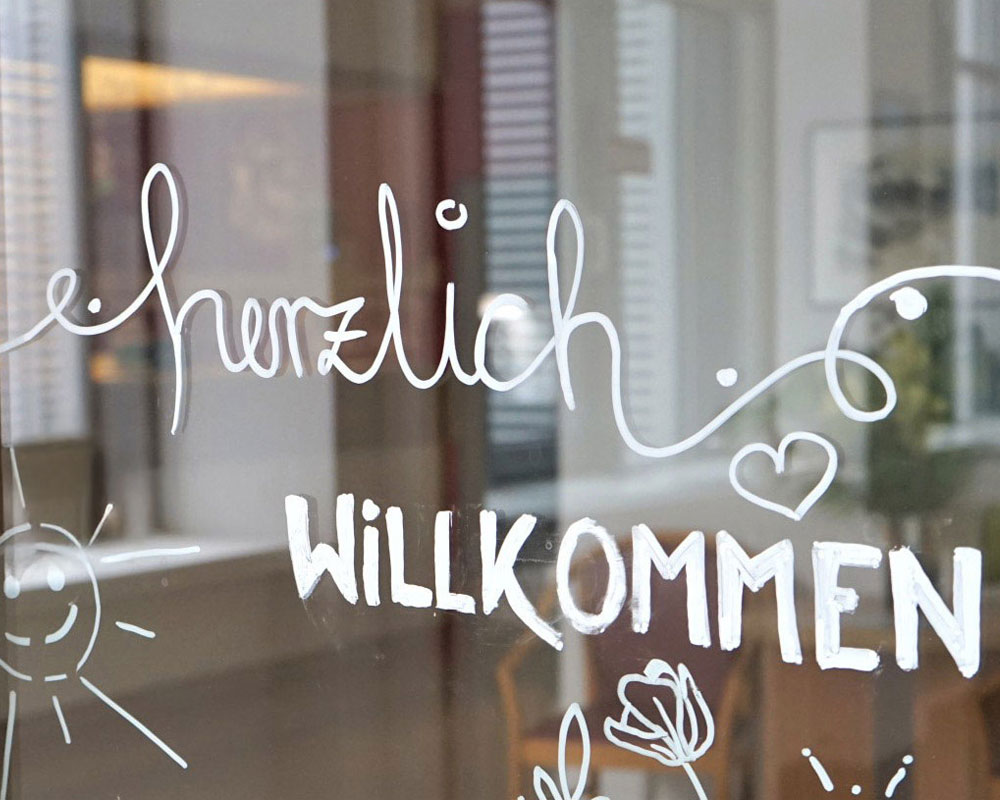 herzlich
WiLLKOMMEN